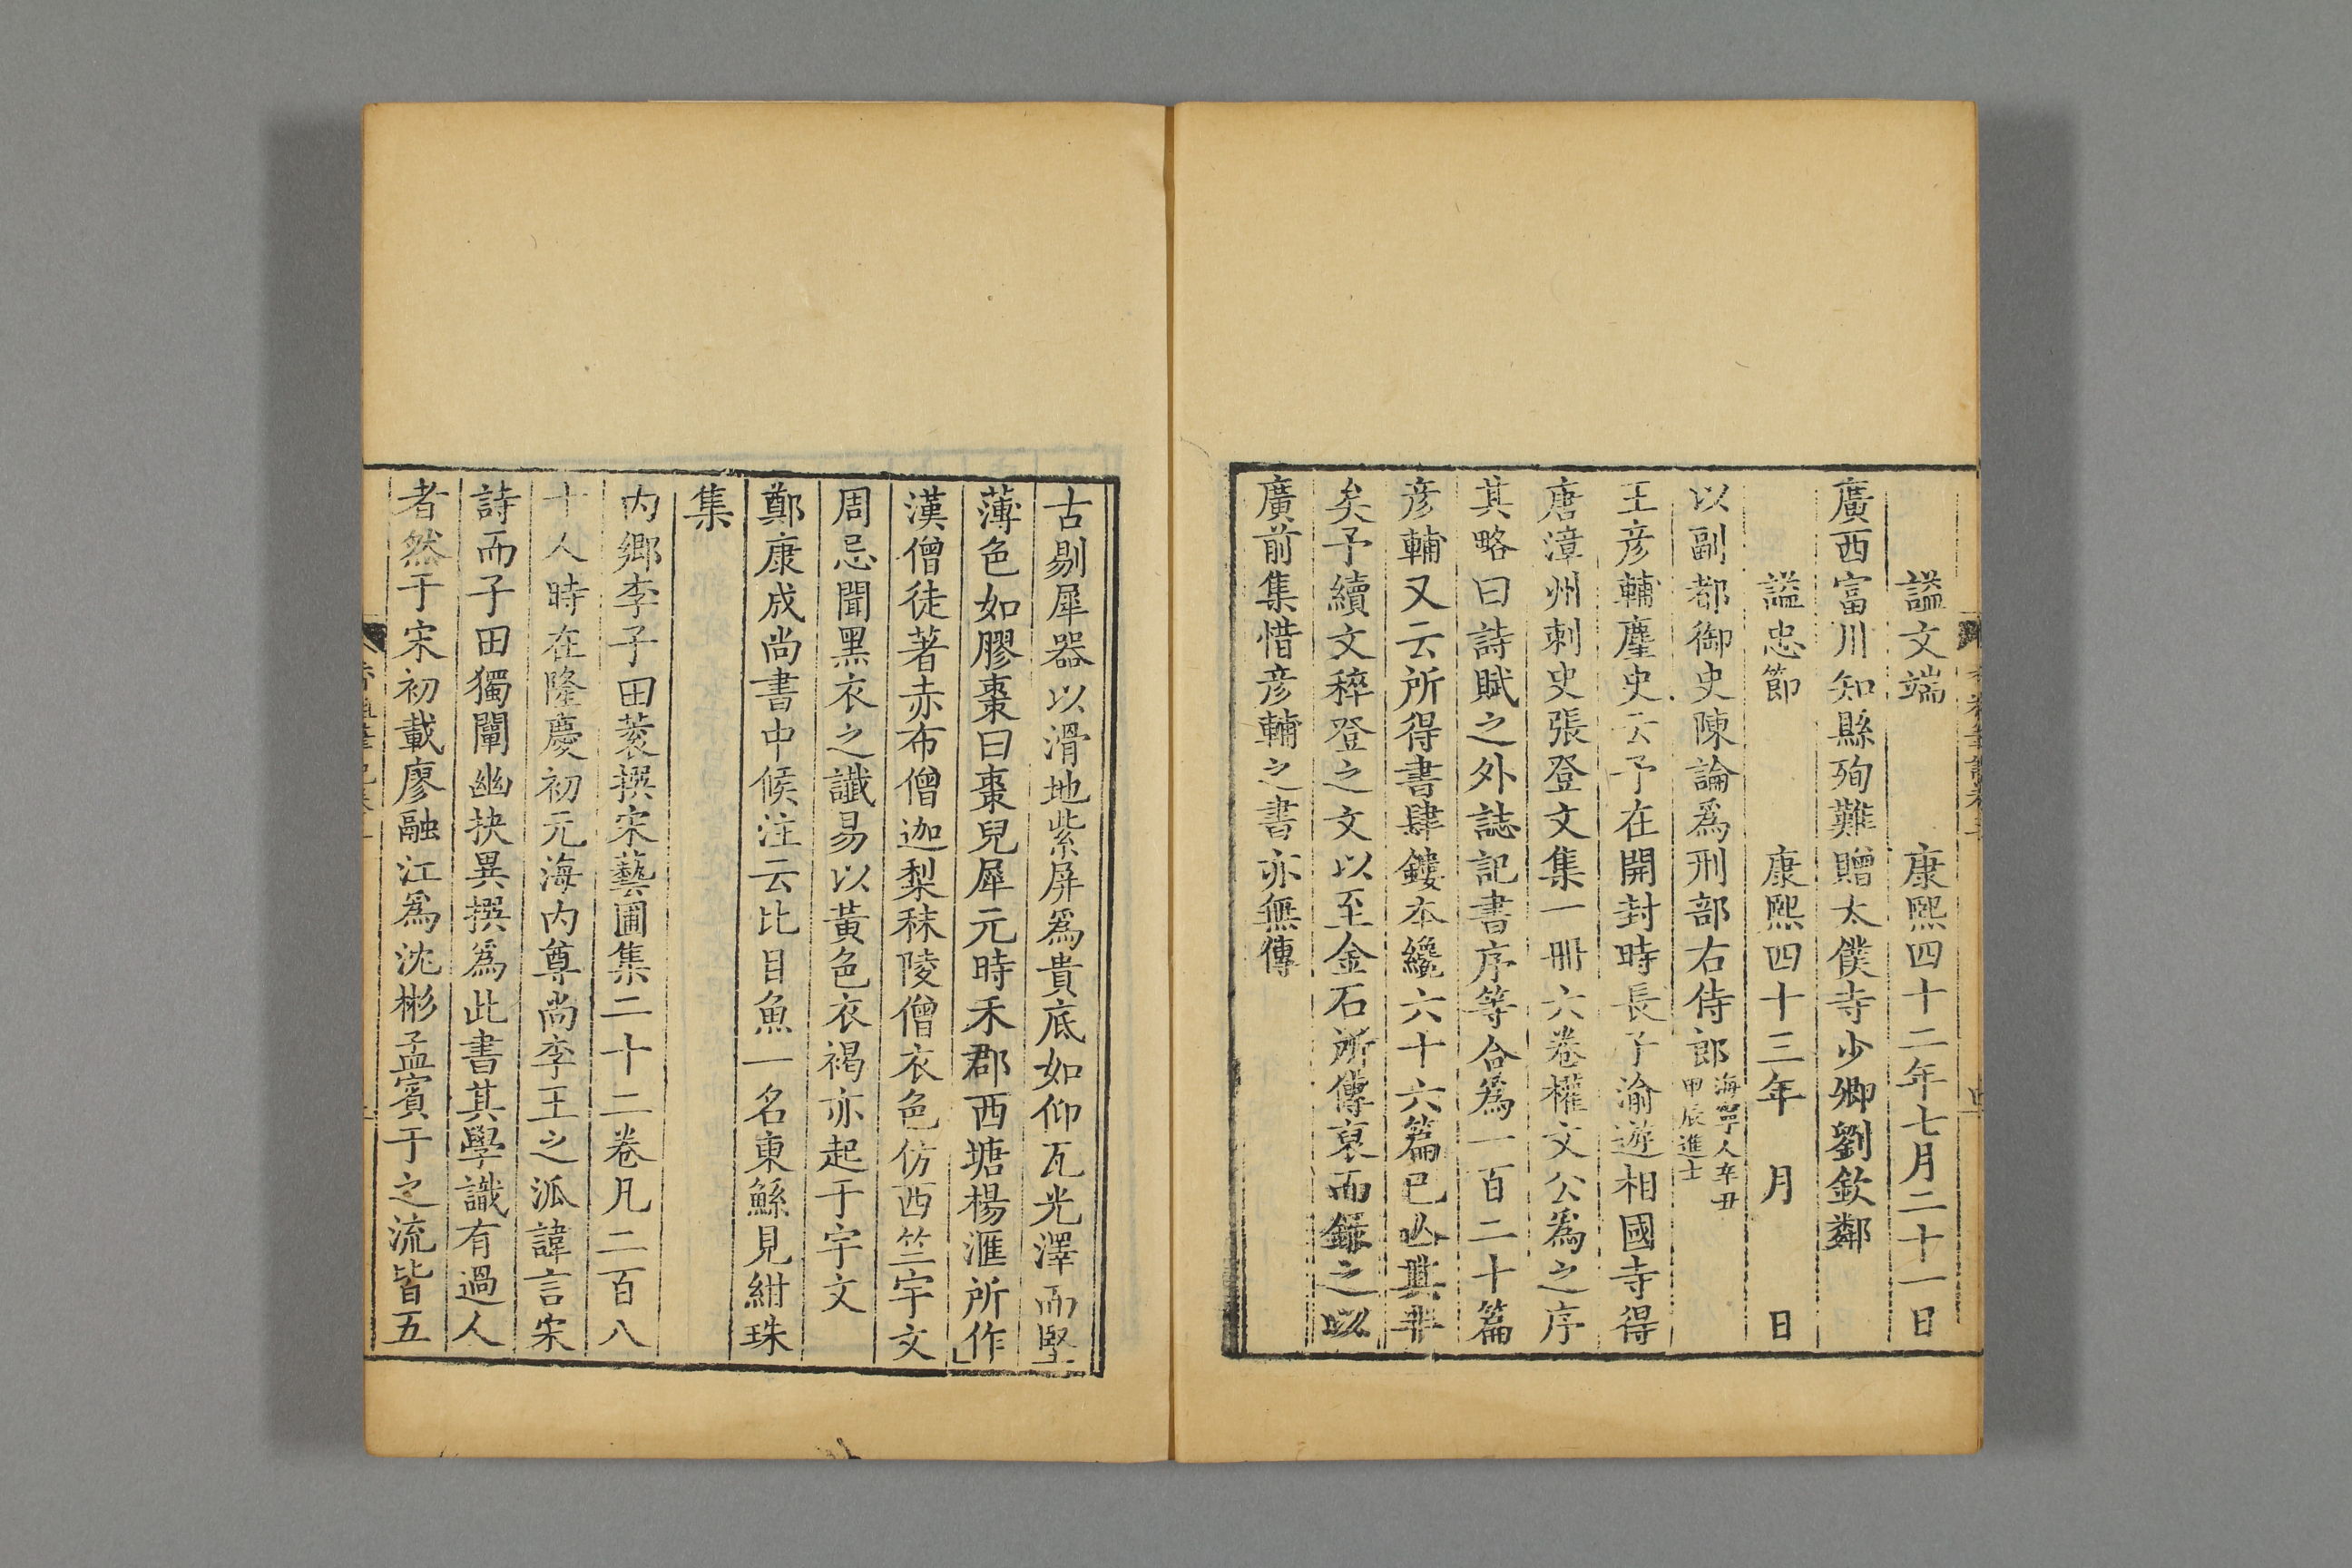 諡文端　康熙四十二年七月二十一日
廣西富川知縣殉難贈太僕寺少卿劉欽鄰
諡忠節　康熙四十三年　月　日
以副都御史陳論爲刑部右侍郎海寧人辛丑甲辰進士
王彦輔麈史云予在開封時長子渝遊相國寺得
唐漳州刺史張登文集一冊六卷權文公爲之序
其略曰詩賦之外誌記書序等合爲一百二十篇
彦輔又云所得書肆鏤本纔六十六篇已亾其半
矣予續文稡登之文以至金石所傳裒而錄之以
廣前集惜彦輔之書亦無傳
古剔犀器以滑地紫犀爲貴底如仰瓦光澤而堅
薄色如膠棗曰棗兒犀元時禾郡西塘楊滙所作
漢僧徒著赤布僧迦梨秣陵僧衣色仿西竺宇文
周忌聞黑衣之讖易以黃色衣褐亦起于宇文
鄭康成尚書中候注云比目魚一名東鯀見紺珠
集
内鄉李子田蓘撰宋藝圃集二十二卷凡二百八
十人時在隆慶初元海内尊尚李王之派諱言宋
詩而子田獨闡幽抉異撰爲此書其學識有過人
者然于宋初載廖融江爲沈彬孟賓于之流皆五